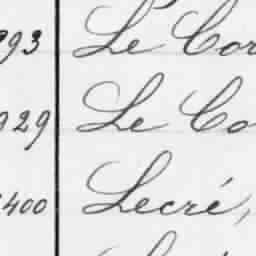 293 Le Cor
929 Le Co
400 Lecré,